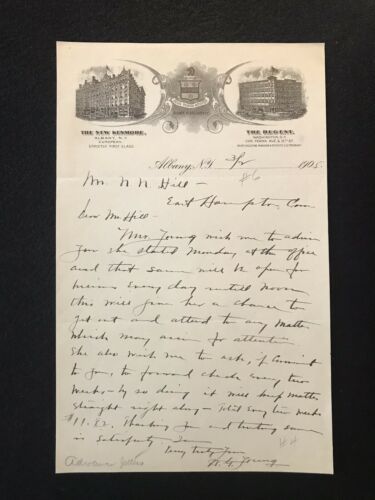 THE NEW KENMORE,
ALBANY, N.Y.
EUROPEAN.
STRICTLY FIRST CLASS.
THE REGENT,
WASHINGTON, D.C.
COR. PENNA. AVE. & 15TH ST.
Albany, N.Y. 3/2 1905.
#6
Mr. N N Hill —
East Hampton, Con
Dear Mr Hill —
Mrs Young wish me to advise
you she started Monday at the office
and that same will be open for
business every day untill noon
this will give her a chance to
get out and attend to any matter
which may arise for attention
She also wish me to ask, if convenient
to you, to forward check every two
weeks — by so doing it will keep matter
straight right along — Total every two weeks
$11.82. Thanking you and trusting same
is satisfactory. I am
Very truly yours
Young
#4